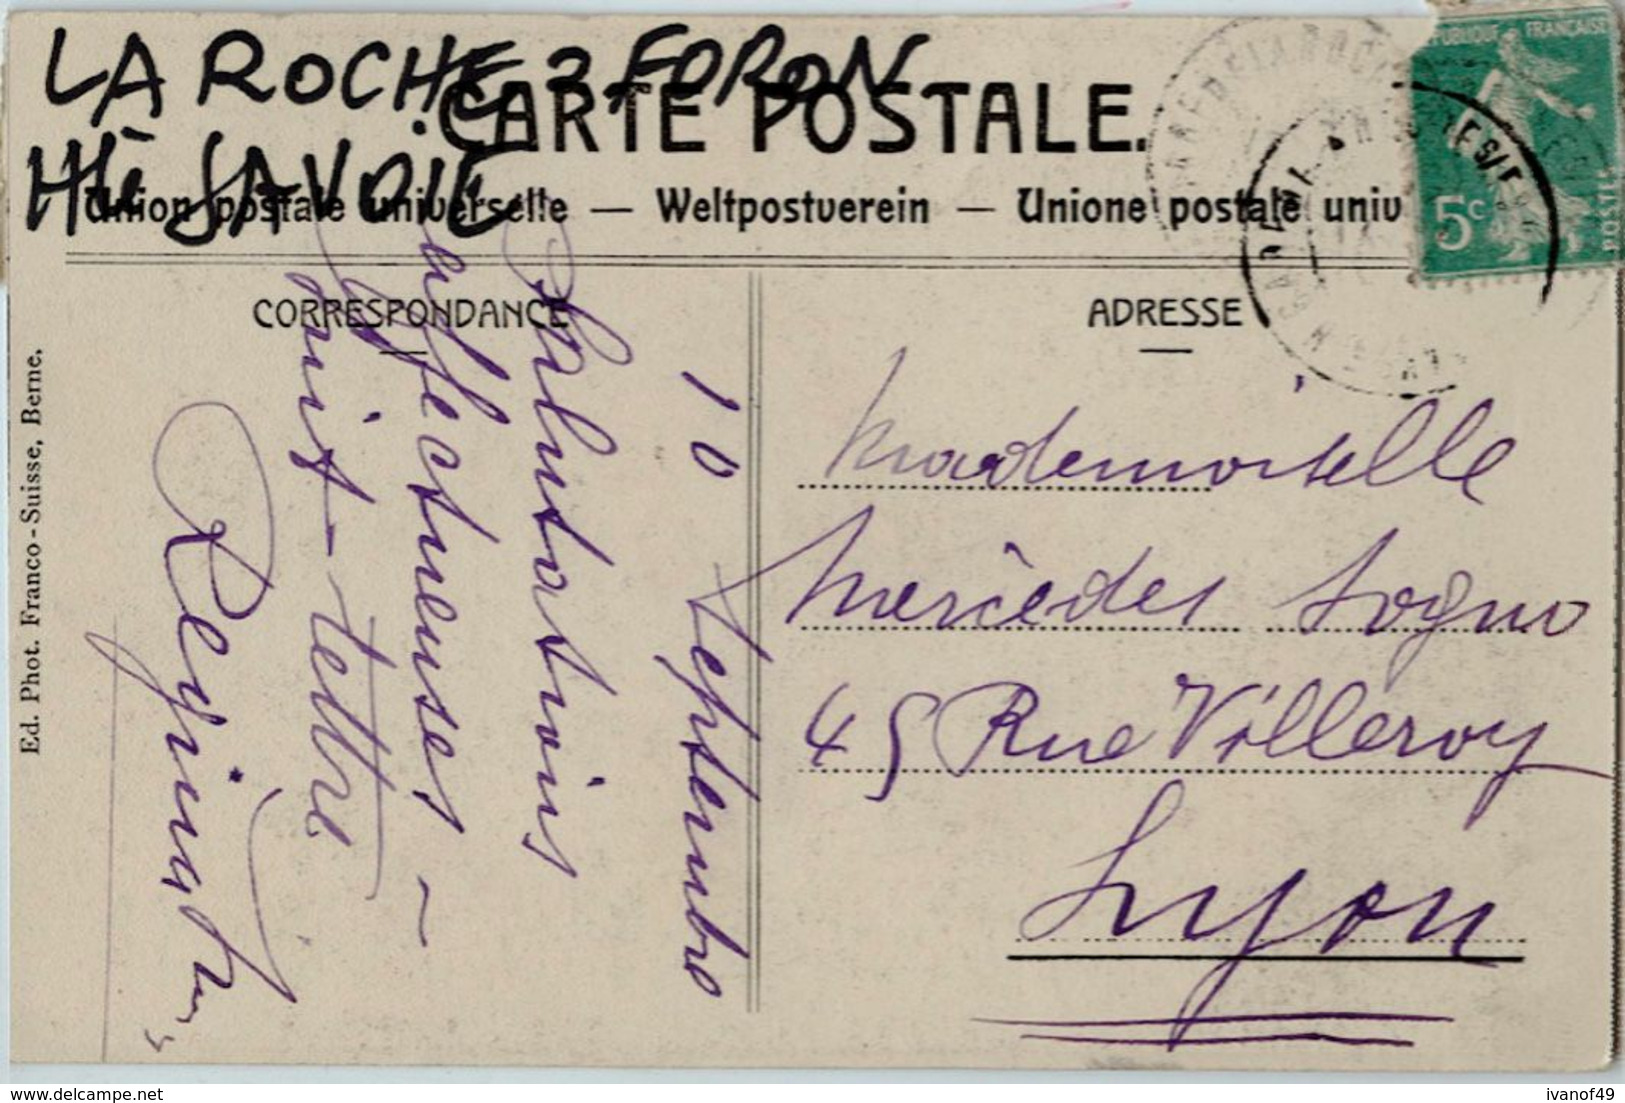 LA ROCHE S FORON
Hte SAVOIE
CARTE POSTALE.
Union postale universelle — Weltpostverein — Unione postale univ
RÉPUBLIQUE FRANÇAISE
5c
POSTES
CORRESPONDANCE
ADRESSE
Ed. Phot. Franco-Suisse, Berne.
10 septembre
Salutations
affectueuses –
suit-lettre
Mademoiselle
Mercédes Sogno
45 Rue Villeroy
Lyon
ivanof49